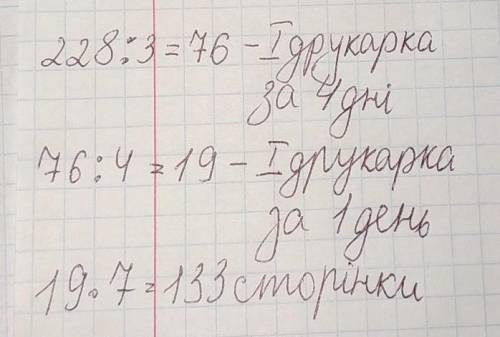 228:3=76 - I друкарка
за 4 дні
76:4=19 - I друкарка
за 1 день
19·7=133 сторінки